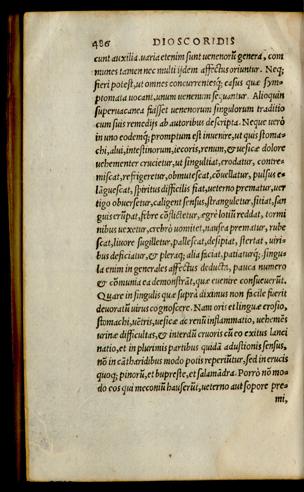 486 DIOSCORIDIS
cunt auxilia. uaria etenim sunt uenenorũ genera, com
munes tamen nec multi ijdem affectus oriuntur. Neq;
fieri potest, ut omnes concurrentesq; casus quæ sym-
ptomata uocant, unum uenenum sequantur. Alioquin
superuacanea fuisset uenenorum singulorum traditio
cum suis remedijs ab autoribus descripta. Neque uerò
in uno eodemq; promptum est inuenire, ut quis stoma-
chi, alui, intestinorum, iecoris, renum, & uesicæ dolore
uehementer crucietur, ut singultiat, erodatur, contre-
miscat, refrigeretur, obmutescat, cõuellatur, pulsus e-
lãguescat, spiritus difficilis fiat, ueterno prematur, uer
tigo obuersetur, caligent sensus, stranguletur, sitiat, san
guis erũpat, febre cõflictetur, ægre lotiũ reddat, tormi
nibus uexetur, crebrò uomitet, nausea prematur, rube
scat, liuore sugilletur, pallescat, desipiat, stertat, uiri-
bus deficiatur, & pleraq; alia faciat, patiaturq; singu
la enim in generales affectus deducta, pauca numero
& cõmunia ea demonstrãt, quæ euenire consueuerũt.
Quare in singulis quæ suprà diximus non facile fuerit
deuoratũ uirus cognoscere. Nam oris et linguæ erosio,
stomachi, uẽtris, uesicæ ac renũ inflammatio, uehemẽs
urinæ difficultas, & interdũ cruoris cũ eo exitus lanci
natio, et in plurimis partibus quidã adustionis sensus,
nõ in cãtharidibus modo potis reperiũtur, sed in erucis
quoq; pinorũ, et bupreste, et salamãdra. Porrò nõ mo-
do eos qui meconiũ hauserũt, ueterno aut sopore pre-
mi,